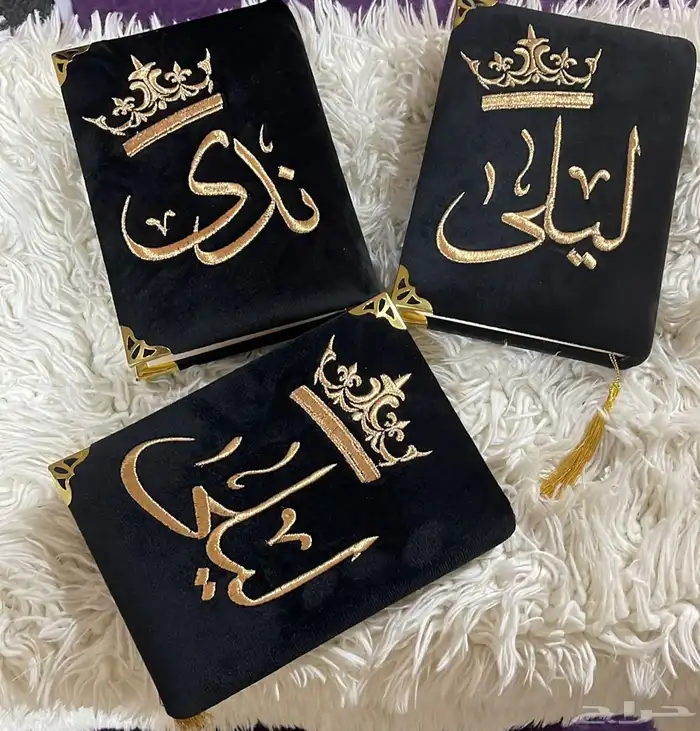 ندى
ليلى
ليلى
حراج